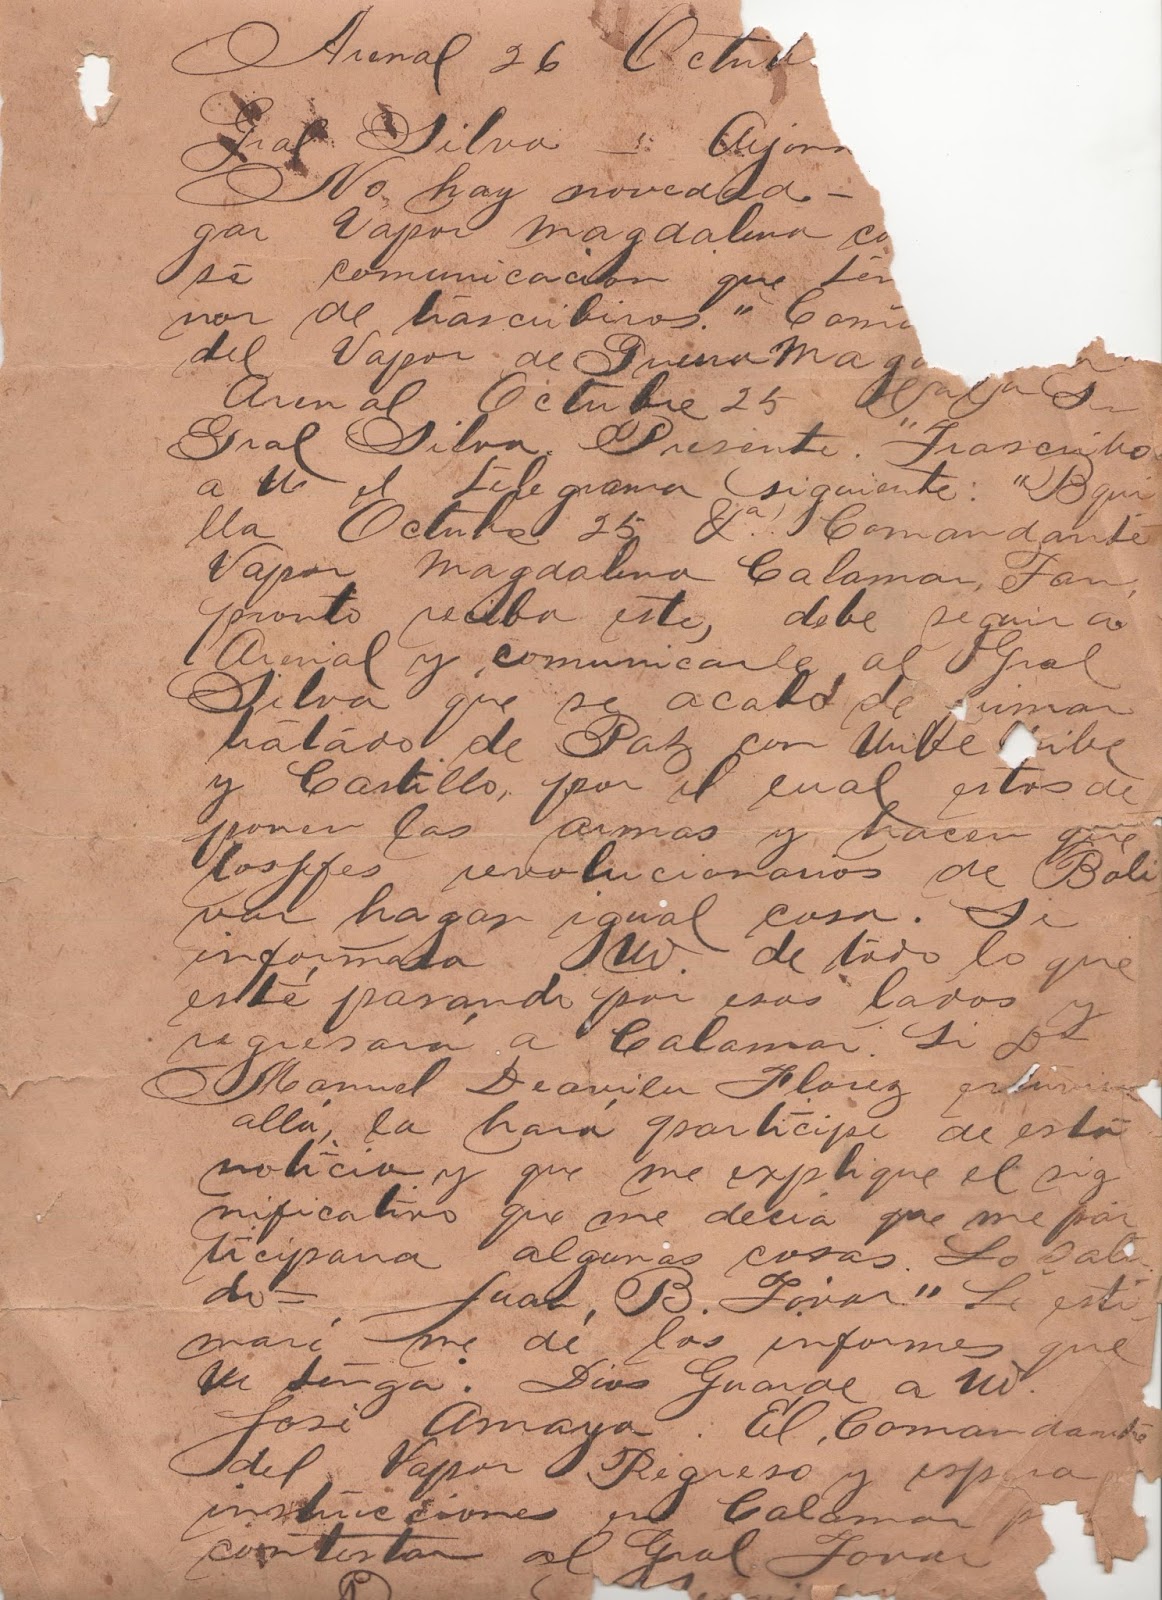 Arenal 26 Octub
Gral Silva - Arjon
No hay novedad. -
gar Vapor Magdalena co
sa comunicacion que ten
nor de trascribiros. " Com
del Vapor de Guerra Mag
Arenal Octubre 25
Gral Silva. Presente. "Trascribo
a Ud el telegrama siguiente: "Bqui
lla Octubre 25 &a. Comandante
Vapor Magdalena Calamar, Tan
pronto reciba este, debe seguir a
Arenal y comunicarle al Gral
Silva que se acaba de firmar
tratado de Paz con Uribe Uribe
y Castillo, por el cual estos de
ponen las armas y hacen que
los jefes revolucionarios de Boli
var hagan igual cosa. Se
informara Ud. de todo lo que
esté pasando por esos lados y
regresará a Calamar. Si Dr
Manuel Deavila Florez estuviere
allá, la hará participe de esta
noticia y que me explique el sig
nificativo que me decia que me par
ticipara algunas cosas. Lo salu
do = Juan B. Tovar" Le esti
maré me dé los informes que
Ud tenga. Dios Guarde a Ud.
José Amaya. El Comandante
del Vapor Regreso y espera
instrucciones en Calamar p
contestar al Gral Tovar